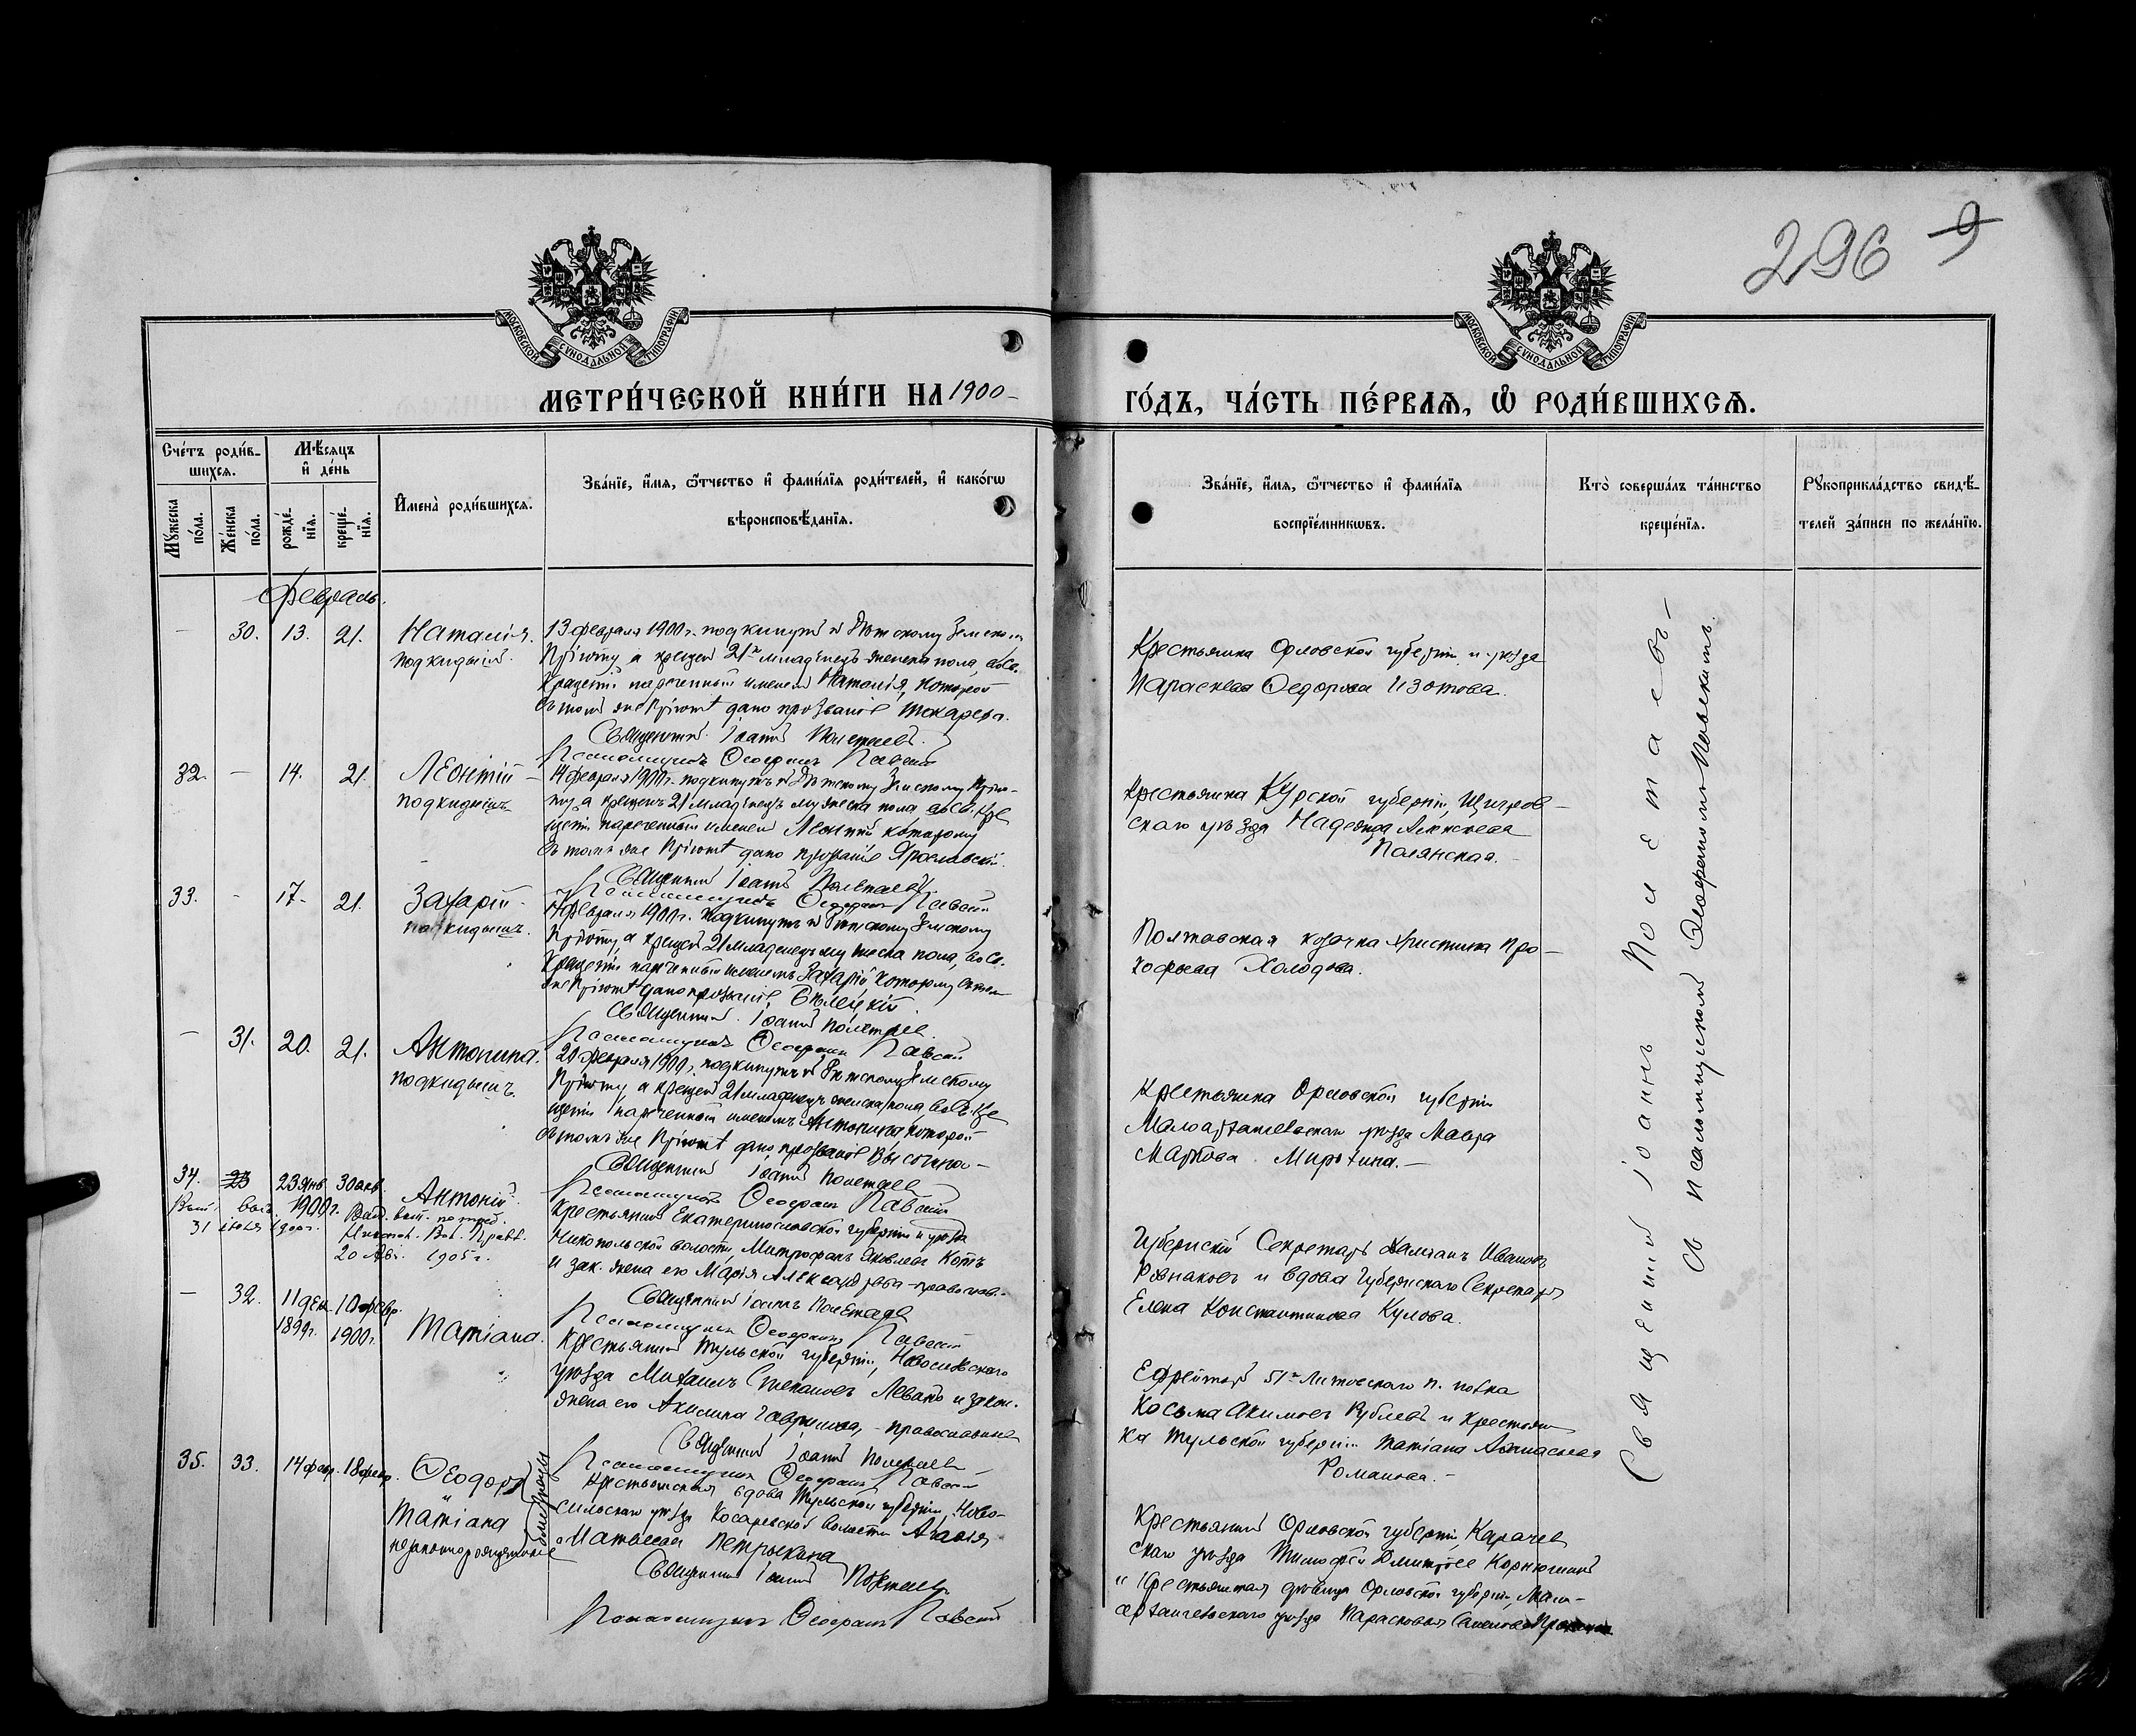 296 9
МОСКОВСКОЙ СУНОДАЛЬНОЙ ТИПОГРАФИИ
МОСКОВСКОЙ СУНОДАЛЬНОЙ ТИПОГРАФИИ
МЕТРИ́ЧЕСКОЙ КНИ́ГИ НА 1900
ГО́ДЪ, ЧА́СТЬ ПЕ́РВАѦ, Ѡ РОДИ́ВШИХСѦ.
Сче́тъ роди́в-
шихсѧ.
Мꙋжеска по́ла.
Же́нска по́ла.
Мѣ́сѧцъ
и де́нь
рожде́-
нїѧ.
креще́-
нїѧ.
Имена̀ роди́вшихсѧ.
Зва́нїе, и́мѧ, ѻ́тчество и фами́лїѧ роди́телей, и како́гѡ
вѣроисповѣ́данїѧ.
Зва́нїе, и́мѧ, ѻ́тчество и фами́лїѧ
воспрїе́мникѡвъ.
Кто̀ соверша́лъ та́инство
креще́нїѧ.
Рꙋкоприкла́дство свидѣ́-
телей за́писи по жела́нїю.
Февраль.
- 30. 13. 21. Наталія.
подкидышъ.
13 февраля 1900 г. подкинутъ Дѣтскому Земскому
Пріюту а крещен 21го младенецъ женска пола, во Св.
Крещеніи нареченный именем Наталія, которой
въ томъ же Пріютѣ дано прозваніе Токарева.
Священникъ Іоаннъ Полетаевъ
Псаломщикъ Ѳеофанъ Павскій
Крестьянка Орловской губерніи и уѣзда
Параскева Федорова Изотова.
32. - 14. 21. Леонтій
подкидышъ
14 февраля 1900 г. подкинутъ Дѣтскому Земскому Прію-
ту, а крещенъ 21 младенецъ мужеска пола, во Св. Кре
щеніи нареченный именем Леонтій которому
въ томъ же Пріютѣ дано прозваніе Ярославскій.
Священникъ Іоаннъ Полетаевъ
Псаломщикъ Ѳеофанъ Павскій
Крестьянка Курской губерніи, Щигров-
скаго уѣзда Надежда Алексеева
Полянская.
33. - 17. 21. Захарій
подкидышъ.
17 февраля 1900 г. подкинутъ Дѣтскому Земскому
Пріюту, а крещен 21 младенецъ мужеска пола, во Св.
Крещеніи нареченный именемъ Захарій, которому въ том
же Пріютѣ дано прозваніе Бѣлецкій
Священникъ Іоаннъ Полетаев
Псаломщикъ Ѳеофанъ Павскій
Полтавская козачка Христина Про-
кофьева Холодова.
- 31. 20. 21. Антонина.
подкидышъ.
20 февраля 1900 г. подкинутъ Дѣтскому Земскому
Пріюту а крещен 21 младенецъ женска пола, во Св. Кре
щеніи нареченный именемъ Антонина которой
въ томъ же Пріютѣ дано прозваніе
Священникъ Іоаннъ Полетаев
Псаломщикъ Ѳеофанъ Павскій
Крестьянка Орловской губерніи
Малоархангельскаго уѣзда Мавра
Маркова
34. 23 23 янв. 30 янв.
1900 г. Антоній
31 іюля 1900 г.
20 Авг. 1905 г.
Крестьянинъ Екатеринославской губерніи и уѣзда
Никопольской волости, Митрофанъ Яковлев Котъ
и зак. жена его Марія Александрова - православ.
Священникъ Іоаннъ Полетаев
Псаломщикъ Ѳеофанъ Павскій
Губернскій Секретарь Иванов
и вдова Губернскаго Секретаря
Елена Константинова Кулова.
- 32. 11 дек. 10 февр.
1899 г. 1900 г. Татіана.
Крестьянинъ Тульской губерніи, Новосильскаго
уѣзда Михаилъ Степановъ и закон.
жена его Акилина Гаврилова, - православные
Священникъ Іоаннъ Полетаев
Псаломщикъ Ѳеофанъ Павскій
Ефрейторъ 51го Литовскаго п. полка
Косьма Акимовъ Рублевъ и крестьян
ка Тульской губерніи Татіана
Романова. -
35. 33. 14 февр. 18 февр. Ѳеодоръ
и
Татіана близнецы
незаконнорожденные
Крестьянская вдова Тульской губерніи, Ново-
сильскаго уѣзда Косаревской волости Агафія
Матвеева Петрыкина
Священникъ Іоаннъ Полетаев
Псаломщикъ Ѳеофанъ Павскій
Крестьянинъ Орловской губерніи, Карачев
скаго уѣзда Тимофей Дмитріев Корнюшинъ
и крестьянская дѣвица Орловской губерніи, Мало-
архангельскаго уѣзда Парасковья Семенова
Священникъ Іоаннъ Полетаевъ -
съ псаломщикомъ Ѳеофаномъ Павскимъ.